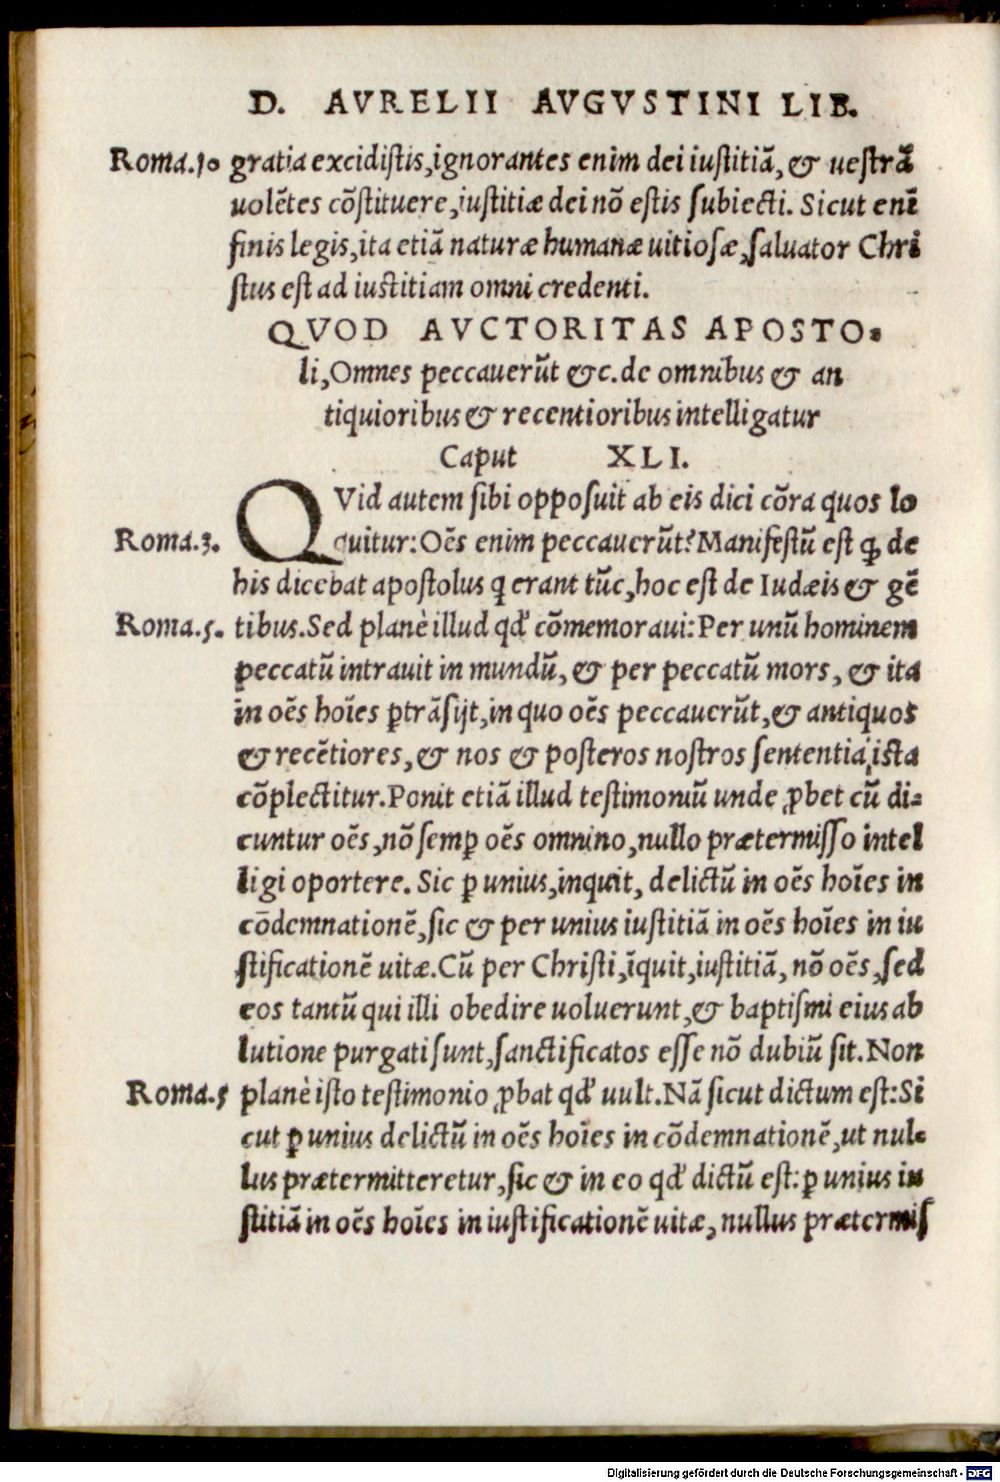 D. AVRELII AVGVSTINI LIB.
Roma.10 gratia excidistis, ignorantes enim dei iustitiã, & uestrã
uolẽtes cõstituere, iustitiæ dei nõ estis subiecti. Sicut enĩ
finis legis, ita etiã naturæ humanæ uitiosæ, saluator Chri
stus est ad iustitiam omni credenti.
QVOD AVCTORITAS APOSTO-
li, Omnes peccauerũt &c. de omnibus & an
tiquioribus & recentioribus intelligatur
Caput XLI.
QVid autem sibi opposuit ab eis dici cõra quos lo
Roma.3. quitur: Oẽs enim peccauerũt? Manifestũ est ꝙ de
his dicebat apostolus q̃ erant tũc, hoc est de Iudæis & gẽ
Roma.5. tibus. Sed planè illud qd' cõmemoraui: Per unũ hominem
peccatũ intrauit in mundũ, & per peccatũ mors, & ita
in oẽs hoĩes ꝑtrãsijt, in quo oẽs peccauerũt, & antiquos
& recẽtiores, & nos & posteros nostros sententia ista
cõplectitur. Ponit etiã illud testimoniũ unde ꝓbet cũ di-
cuntur oẽs, nõ semꝑ oẽs omnino, nullo prætermisso intel
ligi oportere. Sic ꝑ unius, inquit, delictũ in oẽs hoĩes in
cõdemnationẽ, sic & per unius iustitiã in oẽs hoĩes in iu
stificationẽ uitæ. Cũ per Christi, ĩquit, iustitiã, nõ oẽs, sed
eos tantũ qui illi obedire uoluerunt, & baptismi eius ab
lutione purgati sunt, sanctificatos esse nõ dubiũ sit. Non
Roma.5 planè isto testimonio ꝓbat qd' uult. Nã sicut dictum est: Si
cut ꝑ unius delictũ in oẽs hoĩes in cõdemnationẽ, ut nul-
lus prætermitteretur, sic & in eo qd' dictũ est: ꝑ unius iu
stitiã in oẽs hoĩes in iustificationẽ uitæ, nullus prætermis
Digitalisierung gefördert durch die Deutsche Forschungsgemeinschaft - DFG